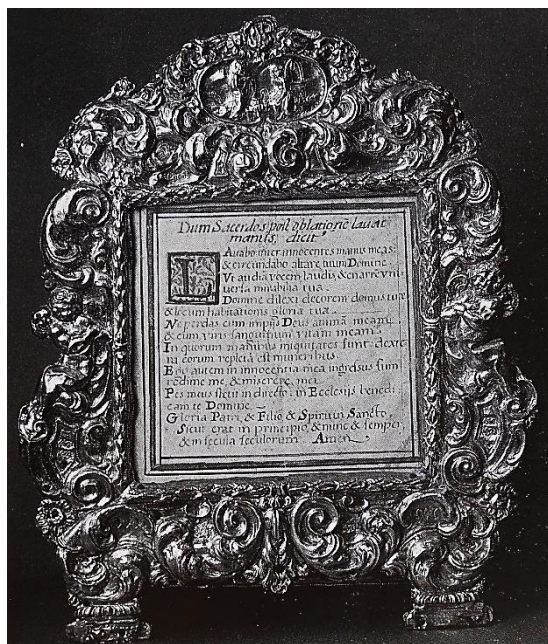 Dum Sacerdos post oblationē lavat
manus, dicit.
LAvabo inter innocentes manus meas:
& circundabo altare tuum Domine.
Vt audiā vocem laudis, & enarrē vni-
versa mirabilia tua.
Domine dilexi decorem domus tuæ
& locum habitationis gloriæ tuæ.
Ne perdas cum impijs Deus animā meam,
& cum viris sanguinum vitam meam.
In quorum manibus iniquitates sunt: dexte-
ra eorum repleta est muneribus.
Ego autem in innocentia mea ingressus sum
redime me, & miserere mei.
Pes meus stetit in directo: in Ecclesijs benedi-
cam te Domine.
Gloria Patri, & Filio & Spiritui Sancto,
Sicut erat in principio, & nunc & semper,
& in secula seculorum. Amen